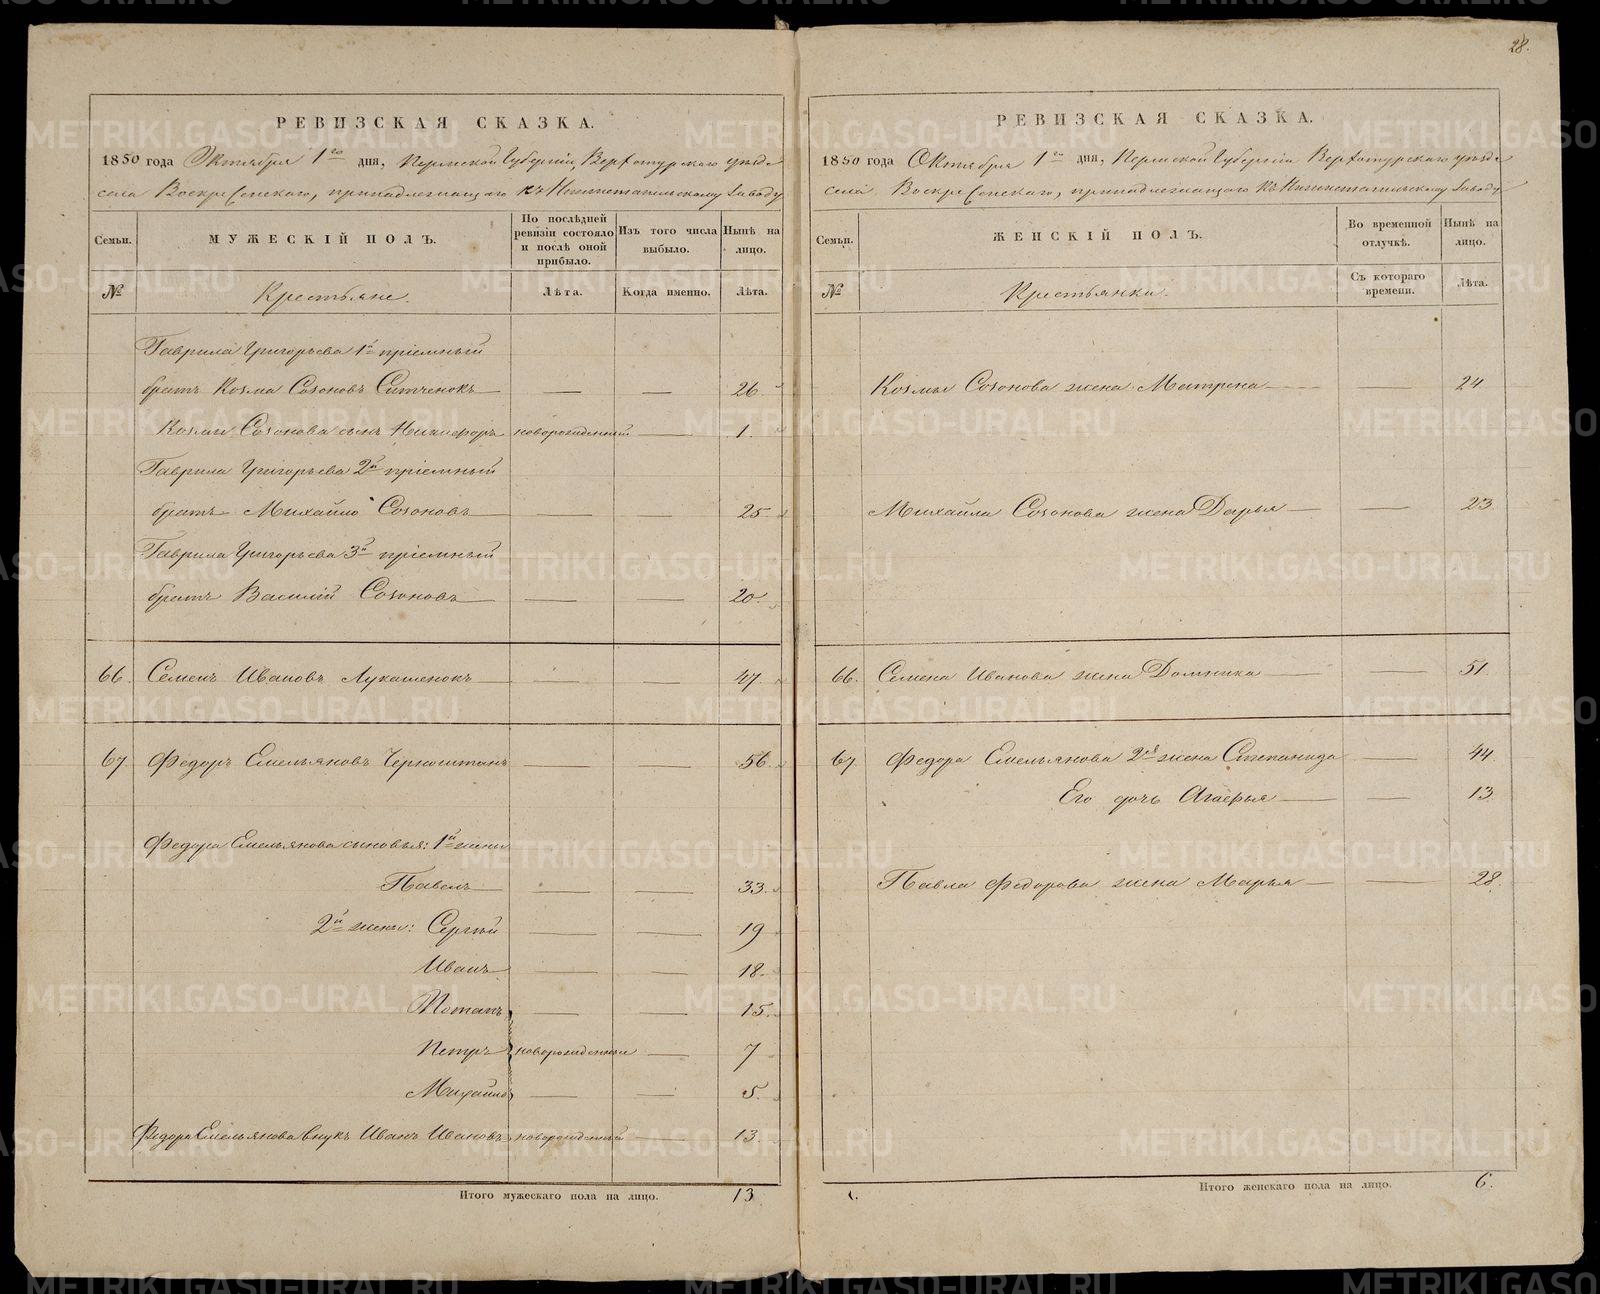 28.
РЕВИЗСКАЯ СКАЗКА.
1850 года Октября 1го дня, Пермской Губернии, Верхотурского уезда
села Воскресенскаго, принадлежащаго къ Нижнетагильскому Заводу
Семьи.
МУЖЕСКІЙ ПОЛЪ.
По послѣдней ревизіи состояло и послѣ оной прибыло.
Изъ того числа выбыло.
Нынѣ на лицо.
№
Крестьяне.
Лѣта.
Когда именно.
Лѣта.
Гаврила Григорьева 1й пріемный
братъ Козма Созоновъ Ситченокъ — — 26
Козмы Созонова сынъ Никифоръ новорожденный — 1.
Гаврила Григорьева 2й пріемный
братъ Михайло Созоновъ — — 25.
Гаврила Григорьева 3й пріемный
братъ Василій Созоновъ — — 20.
66. Семенъ Ивановъ Лукашенокъ — — 47.
67 Федоръ Емельяновъ Черноштанъ — — 56.
Федора Емельянова сыновья: 1й жены
Павелъ — — 33.
2й жены: Сергѣй — — 19
Иванъ — — 18.
Потапъ — — 15.
Петръ новорожденные — 7
Михайло — — 5.
Федора Емельянова внукъ Иванъ Ивановъ новорожденный — 13.
Итого мужескаго пола на лицо. 13
РЕВИЗСКАЯ СКАЗКА.
1850 года Октября 1го дня, Пермской Губерніи Верхотурскаго уезда
села Воскресенскаго, принадлежащаго къ Нижнетагильскому Заводу
Семьи.
ЖЕНСКІЙ ПОЛЪ.
Во временной отлучкѣ.
Нынѣ на лицо.
№
Крестьянки.
Съ котораго времени.
Лѣта.
Козмы Созонова жена Матрена — — 24
Михайла Созонова жена Дарья — — 23.
66. Семена Иванова жена Домника — — 51.
67. Федора Емельянова 2я жена Степанида — 44
Его дочь Агафья — — 13
Павла Федорова жена Марья — — 28.
Итого женскаго пола на лицо. 6.
METRIKI.GASO-URAL.RU